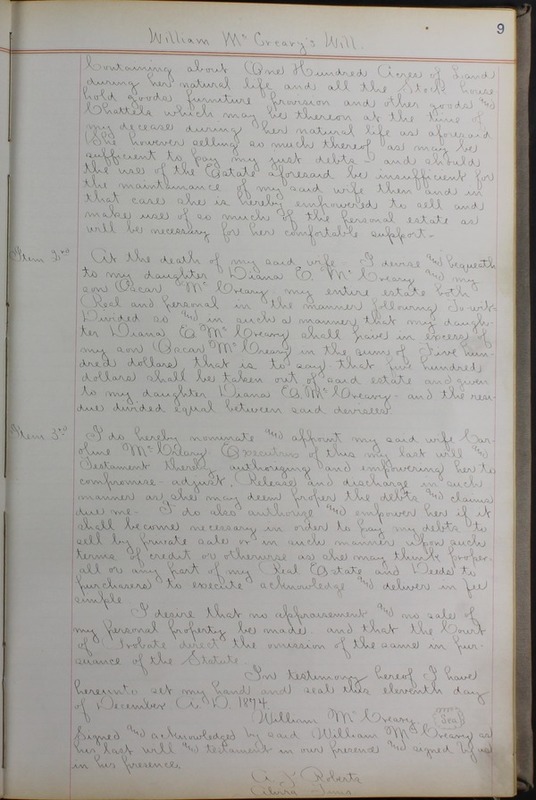 9
William McCreary's Will.
Containing about One Hundred Acres of Land
during her natural life and all the Stock house
hold goods furniture provision and other goods and
Chattels which may be thereon at the time of
my decease during her natural life as aforesaid
She however selling so much thereof as may be
sufficient to pay my just debts - and should
the use of the Estate aforesaid be insufficient for
the maintainance of my said wife then and in
that case she is hereby empowered to sell and
make use of so much of the personal estate as
will be necessary for her comfortable support -
Item 2nd At the death of my said wife I devise and bequeath
to my daughter Diana E. McCreary and my
son Oscar McCreary my entire estate both
Real and personal in the manner following To-wit-
Divided so and in such a manner that my daugh-
ter Diana E McCreary shall have in excess of
my son Oscar McCreary in the sum of Five hun-
dred dollars that is to say that five hundred
dollars shall be taken out of said estate and given
to my daughter Diana E. McCreary - and the resi-
due divided equal between said devisees.
Item 3rd I do hereby nominate and appoint my said wife Car-
oline McCreary Executrix of this my last will and
Testament Hereby authorizing and empowering her to
compromise - adjust, Release and discharge in such
manner as she may deem proper the debts and claims
due me - I do also authorize and empower her if it
shall become necessary in order to pay my debts to
sell by private sale or in such manner upon such
terms of credit or otherwise as she may think proper
all or any part of my Real Estate and Deeds to
purchasers to execute acknowledge and deliver in fee
simple
I desire that no appraisement and no sale of
my personal property be made and that the Court
of Probate direct the omission of the same in pur-
suance of the Statute.
In testimony hereof I have
hereunto set my hand and seal this eleventh day
of December A.D. 1874
William McCreary Seal
Signed and acknowledged by said William McCreary as
his last will and testament in our presence and signed by us
in his presence.
A. J. Roberts